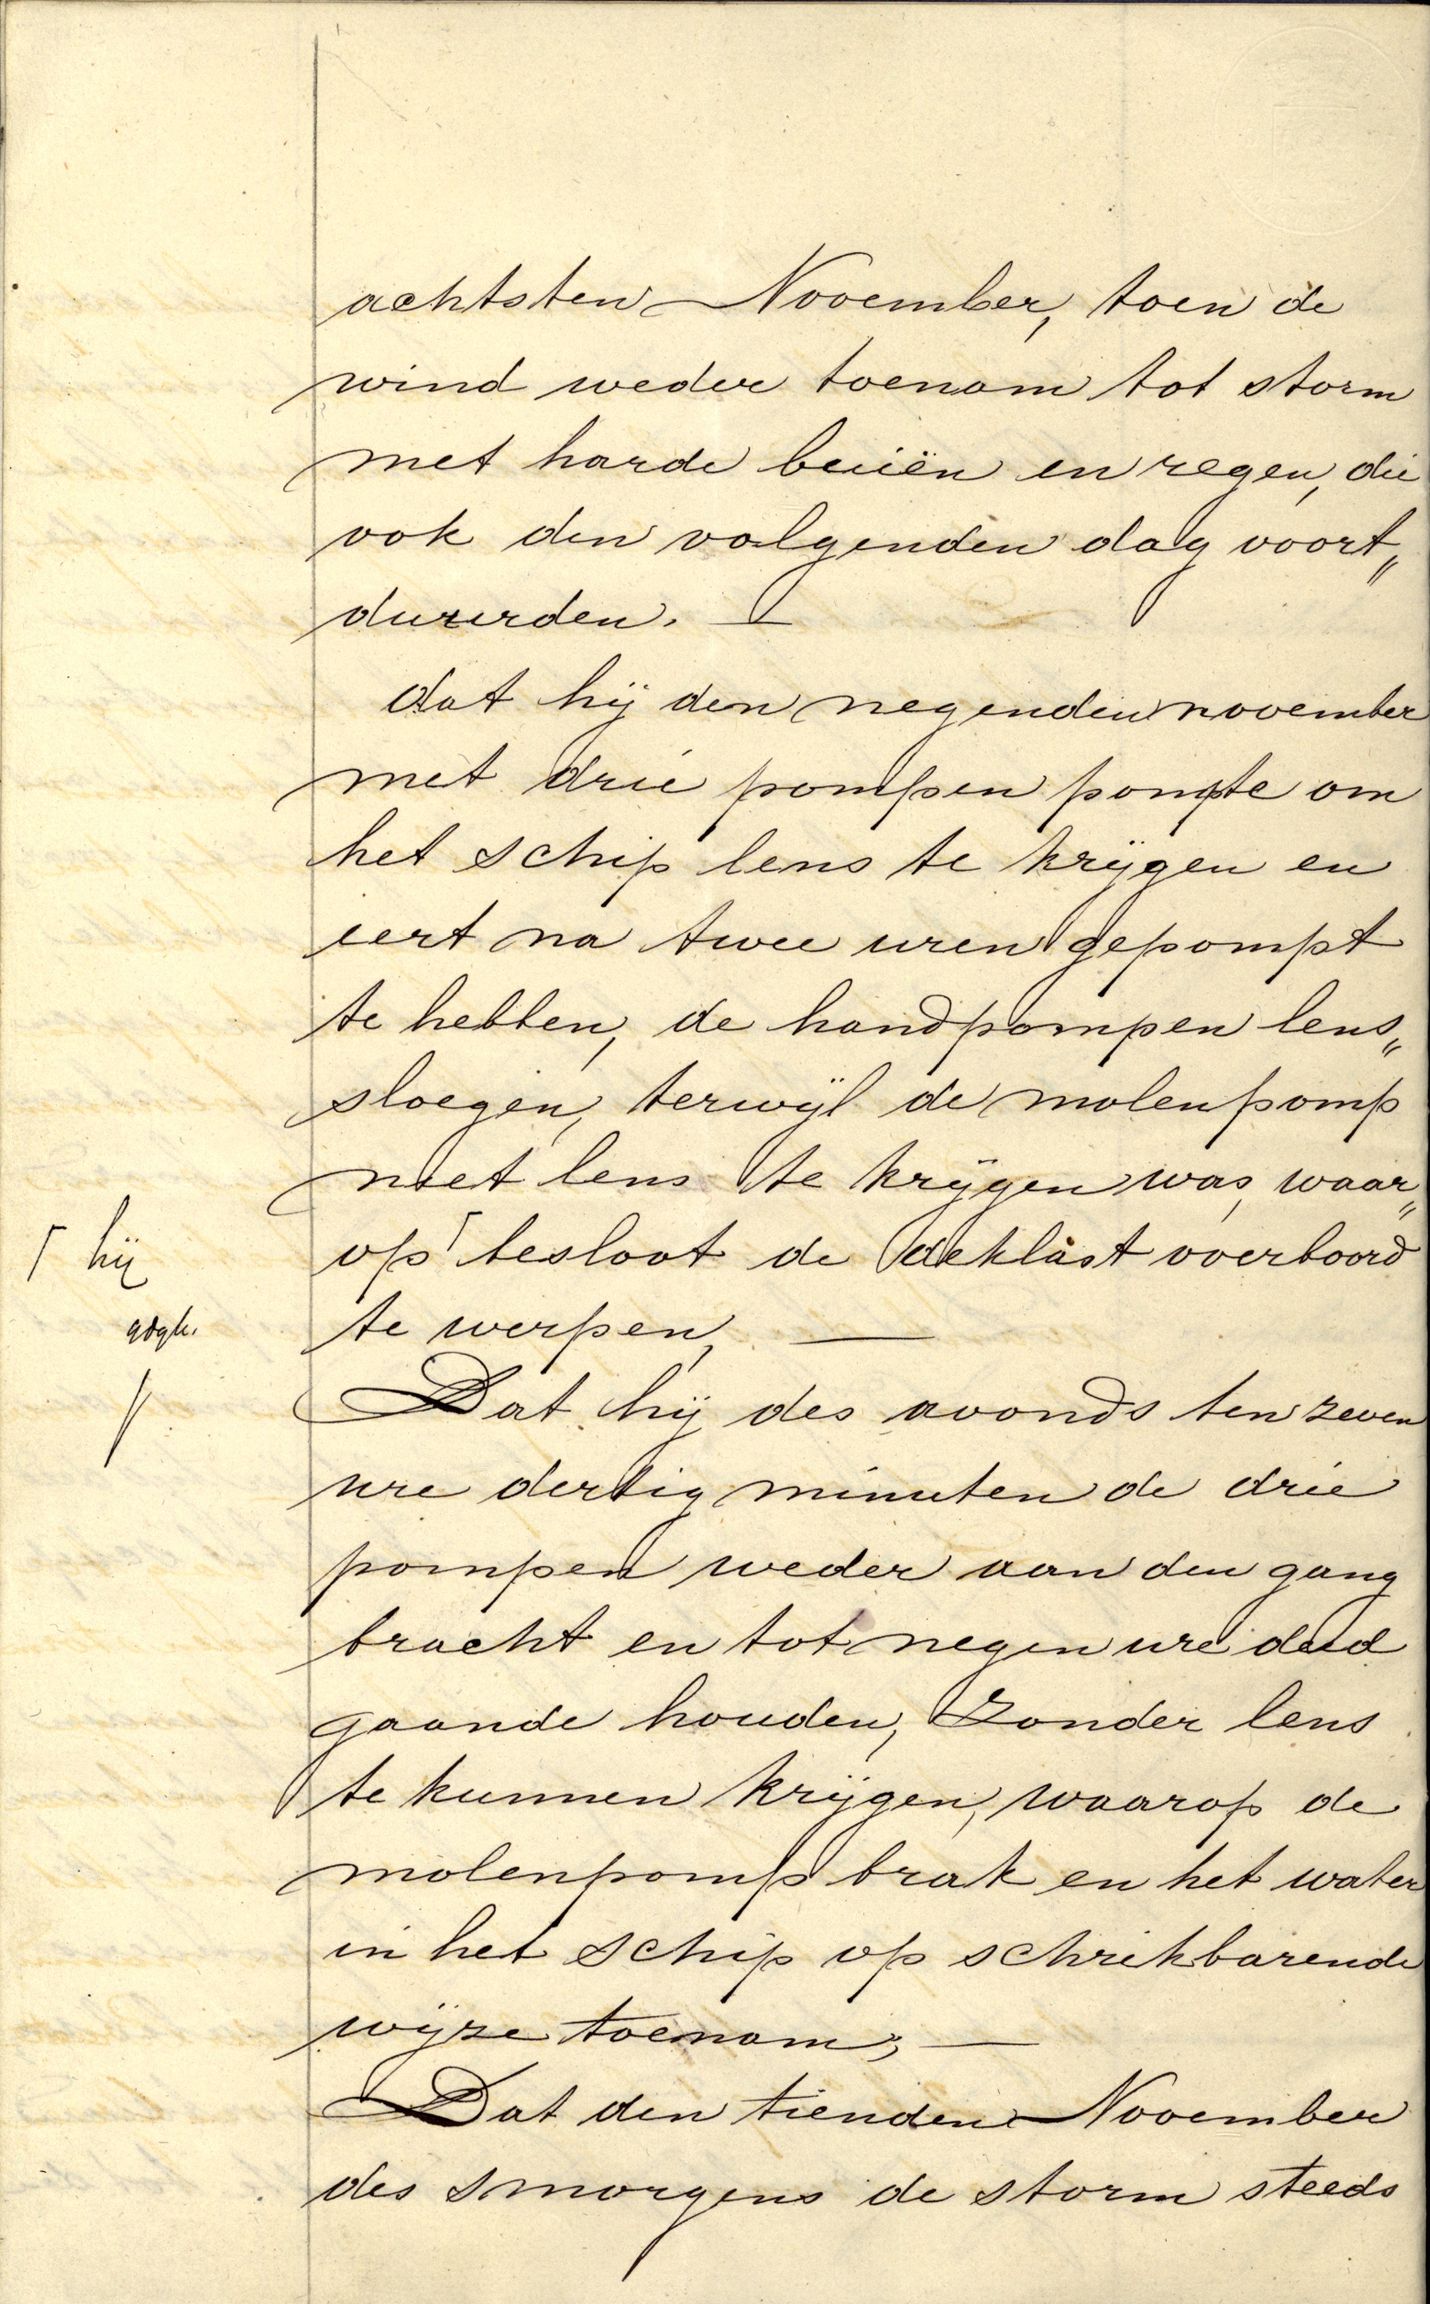 achtsten November, toen de
wind weder toenam tot storm
met harde buiën en regen, die
ook den volgenden dag voort„
duurden. —
dat hij den negenden november
met drie pompen pompte om
het schip lens te krijgen en
eert na twee uren gepompt
te hebben, de handpompen lens„
sloegen, terwijl de molenpomp
niet lens te krijgen was, waar„
op ⌈ besloot de deklast overboord
⌈ hij
te werpen, —
Dat hij des avonds ten zeven
ure dertig minuten de drie
pompen weder aan den gang
bracht en tot negen ure deed
gaande houden, zonder lens
te kunnen krijgen, waarop de
molenpomp brak en het water
in het schip op schrikbarende
wijze toenam; —
Dat den tienden November
des smorgens de storm steeds